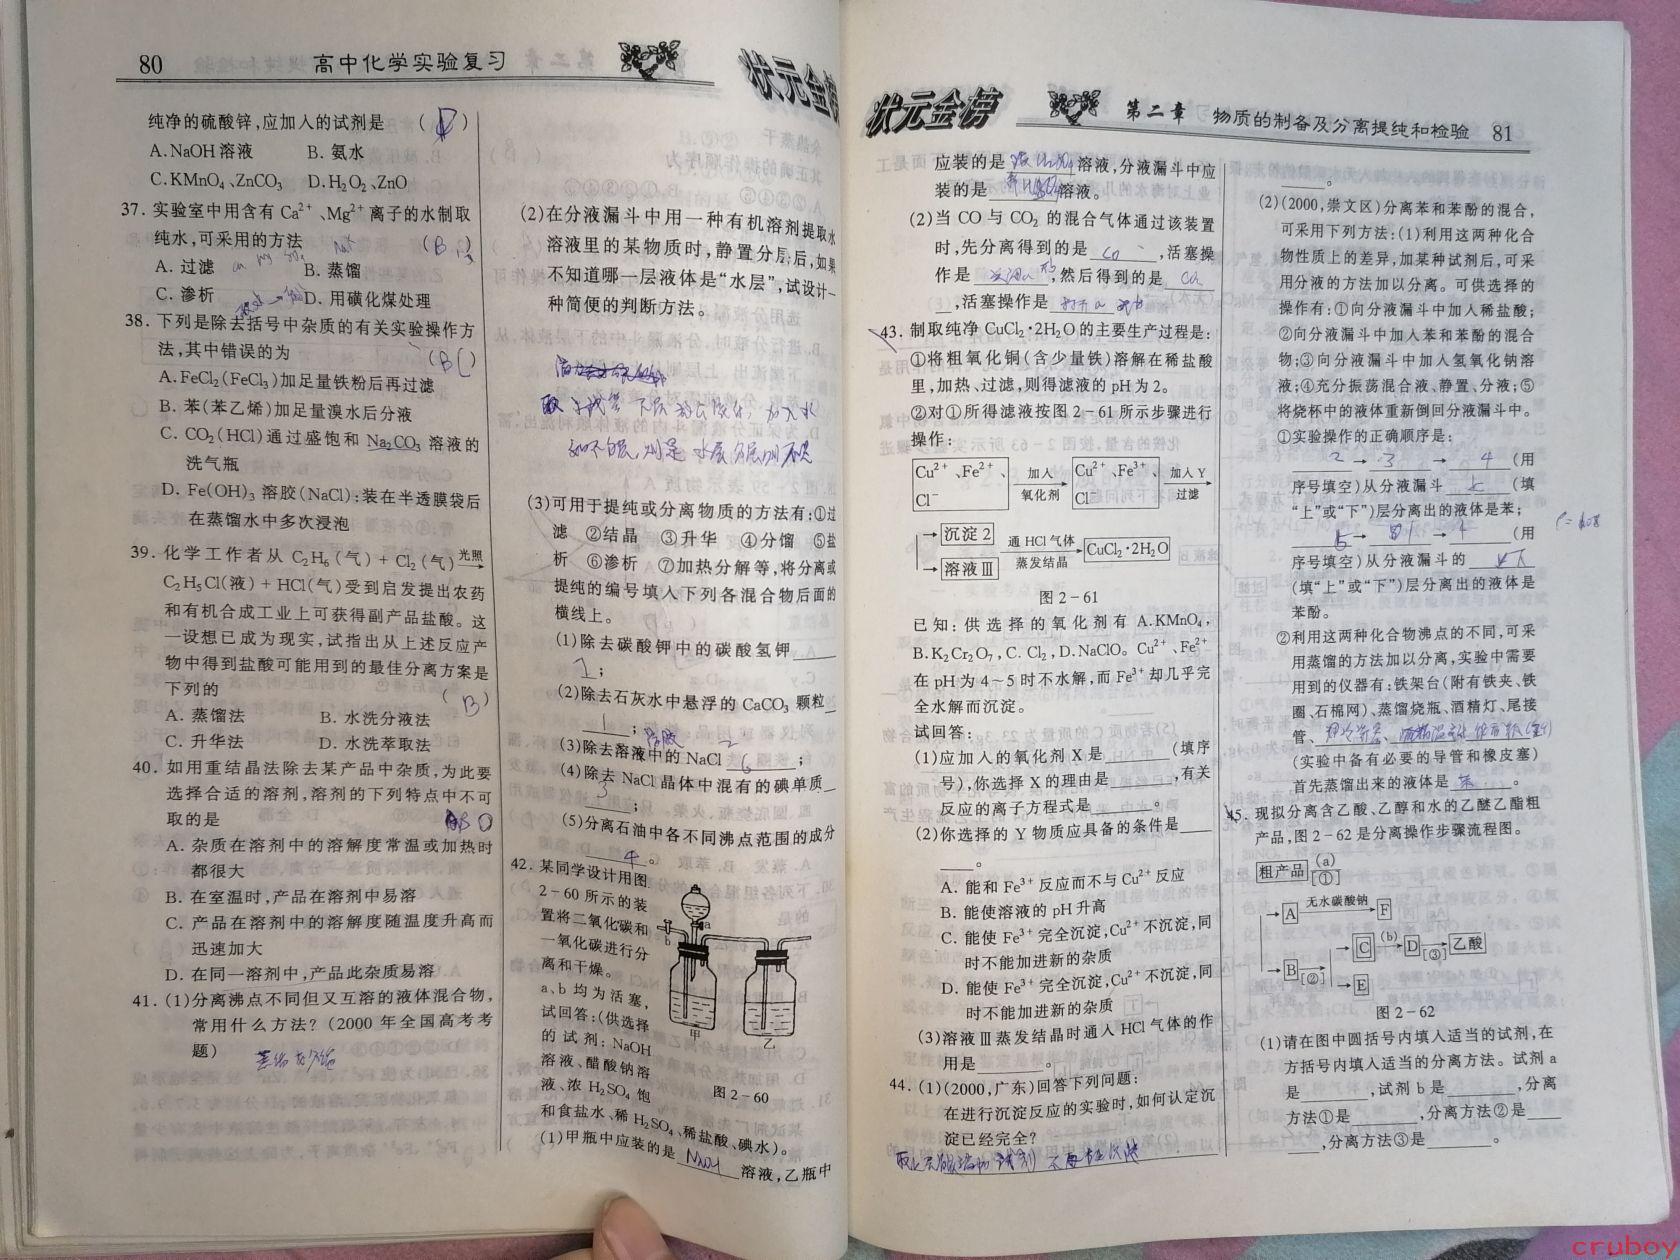 80 高中化学实验复习 状元金榜
纯净的硫酸锌,应加入的试剂是 (D)
A.NaOH溶液 B. 氨水
C.KMnO₄、ZnCO₃ D.H₂O₂、ZnO
37. 实验室中用含有 Ca²⁺、Mg²⁺ 离子的水制取
纯水,可采用的方法 (B )
A. 过滤 B. 蒸馏
C. 渗析 D. 用磺化煤处理
38. 下列是除去括号中杂质的有关实验操作方
法,其中错误的为 (BC)
A.FeCl₂(FeCl₃)加足量铁粉后再过滤
B. 苯(苯乙烯)加足量溴水后分液
C. CO₂(HCl)通过盛饱和 Na₂CO₃ 溶液的
洗气瓶
D. Fe(OH)₃ 溶胶(NaCl):装在半透膜袋后
在蒸馏水中多次浸泡
39. 化学工作者从 C₂H₆(气) + Cl₂(气) 光照→
C₂H₅Cl(液) + HCl(气)受到启发提出农药
和有机合成工业上可获得副产品盐酸。这
一设想已成为现实,试指出从上述反应产
物中得到盐酸可能用到的最佳分离方案是
下列的 (B)
A. 蒸馏法 B. 水洗分液法
C. 升华法 D. 水洗萃取法
40. 如用重结晶法除去某产品中杂质,为此要
选择合适的溶剂,溶剂的下列特点中不可
取的是
A. 杂质在溶剂中的溶解度常温或加热时
都很大
B. 在室温时,产品在溶剂中易溶
C. 产品在溶剂中的溶解度随温度升高而
迅速加大
D. 在同一溶剂中,产品此杂质易溶
41. (1)分离沸点不同但又互溶的液体混合物,
常用什么方法? (2000 年全国高考考
题)
(2)在分液漏斗中用一种有机溶剂提取水
溶液里的某物质时,静置分层后,如果
不知道哪一层液体是“水层”,试设计一
种简便的判断方法。
(3)可用于提纯或分离物质的方法有:①过
滤 ②结晶 ③升华 ④分馏 ⑤盐
析 ⑥渗析 ⑦加热分解等,将分离或
提纯的编号填入下列各混合物后面的
横线上。
(1)除去碳酸钾中的碳酸氢钾
7 ;
(2)除去石灰水中悬浮的 CaCO₃ 颗粒
1 ;
(3)除去溶液中的 NaCl 6 ;
(4)除去 NaCl 晶体中混有的碘单质
3 ;
(5)分离石油中各不同沸点范围的成分
4 。
42. 某同学设计用图
2-60 所示的装
置将二氧化碳和
一氧化碳进行分
离和干燥。
a、b 均为活塞,
试回答:(供选择
的试剂: NaOH
溶液、醋酸钠溶
液、浓 H₂SO₄ 饱
和食盐水、稀 H₂SO₄、稀盐酸、碘水)。
a
b
甲 乙
图 2-60
(1)甲瓶中应装的是 溶液,乙瓶中
状元金榜 第二章 物质的制备及分离提纯和检验 81
应装的是 溶液,分液漏斗中应
装的是 溶液。
(2)当 CO 与 CO₂ 的混合气体通过该装置
时,先分离得到的是 CO ,活塞操
作是 ,然后得到的是
,活塞操作是
43. 制取纯净 CuCl₂·2H₂O 的主要生产过程是:
①将粗氧化铜(含少量铁)溶解在稀盐酸
里,加热、过滤,则得滤液的 pH 为 2。
②对①所得滤液按图 2-61 所示步骤进行
操作:
Cu²⁺、Fe²⁺、Cl⁻ 加入氧化剂→ Cu²⁺、Fe³⁺、Cl⁻ 加入 Y 过滤
→沉淀 2
→溶液Ⅲ 通 HCl 气体 蒸发结晶→ CuCl₂·2H₂O
图 2-61
已知: 供选择的氧化剂有 A.KMnO₄,
B.K₂Cr₂O₇, C. Cl₂, D.NaClO。Cu²⁺、Fe²⁺
在 pH 为 4~5 时不水解,而 Fe³⁺ 却几乎完
全水解而沉淀。
试回答:
(1)应加人的氧化剂 X 是 (填序
号),你选择 X 的理由是 ,有关
反应的离子方程式是 。
(2)你选择的 Y 物质应具备的条件是
。
A. 能和 Fe³⁺ 反应而不与 Cu²⁺ 反应
B. 能使溶液的 pH 升高
C. 能使 Fe³⁺ 完全沉淀,Cu²⁺ 不沉淀,同
时不能加进新的杂质
D. 能使 Fe³⁺ 完全沉淀,Cu²⁺ 不沉淀,同
时不能加进新的杂质
(3)溶液Ⅲ蒸发结晶时通入 HCl 气体的作
用是 。
44. (1)(2000,广东)回答下列问题:
在进行沉淀反应的实验时,如何认定沉
淀已经完全?
。
(2)(2000,崇文区)分离苯和苯酚的混合,
可采用下列方法:(1)利用这两种化合
物性质上的差异,加某种试剂后,可采
用分液的方法加以分离。可供选择的
操作有:①向分液漏斗中加入稀盐酸;
②向分液漏斗中加入苯和苯酚的混合
物;③向分液漏斗中加入氢氧化钠溶
液;④充分振荡混合液、静置、分液;⑤
将烧杯中的液体重新倒回分液漏斗中。
①实验操作的正确顺序是:
2 → 3 → 4 (用
序号填空)从分液漏斗 上 (填
“上”或“下”)层分离出的液体是苯;
5 → 1 → 4 (用
序号填空)从分液漏斗的 下
(填“上”或“下”)层分离出的液体是
苯酚。
②利用这两种化合物沸点的不同,可采
用蒸馏的方法加以分离,实验中需要
用到的仪器有:铁架台(附有铁夹、铁
圈、石棉网)、蒸馏烧瓶、酒精灯、尾接
管、
(实验中备有必要的导管和橡皮塞)
首先蒸馏出来的液体是 苯 。
45. 现拟分离含乙酸、乙醇和水的乙醚乙酯粗
产品,图 2-62 是分离操作步骤流程图。
粗产品 (a) [①]
→A 无水碳酸钠→F
→B [②] →C (b)→D [③]→乙酸
→E
图 2-62
(1)请在图中圆括号内填人适当的试剂,在
方括号内填入适当的分离方法。试剂 a
是 ,试剂 b 是 ,分离
方法①是 ,分离方法②是
,分离方法③是 。
cruboy